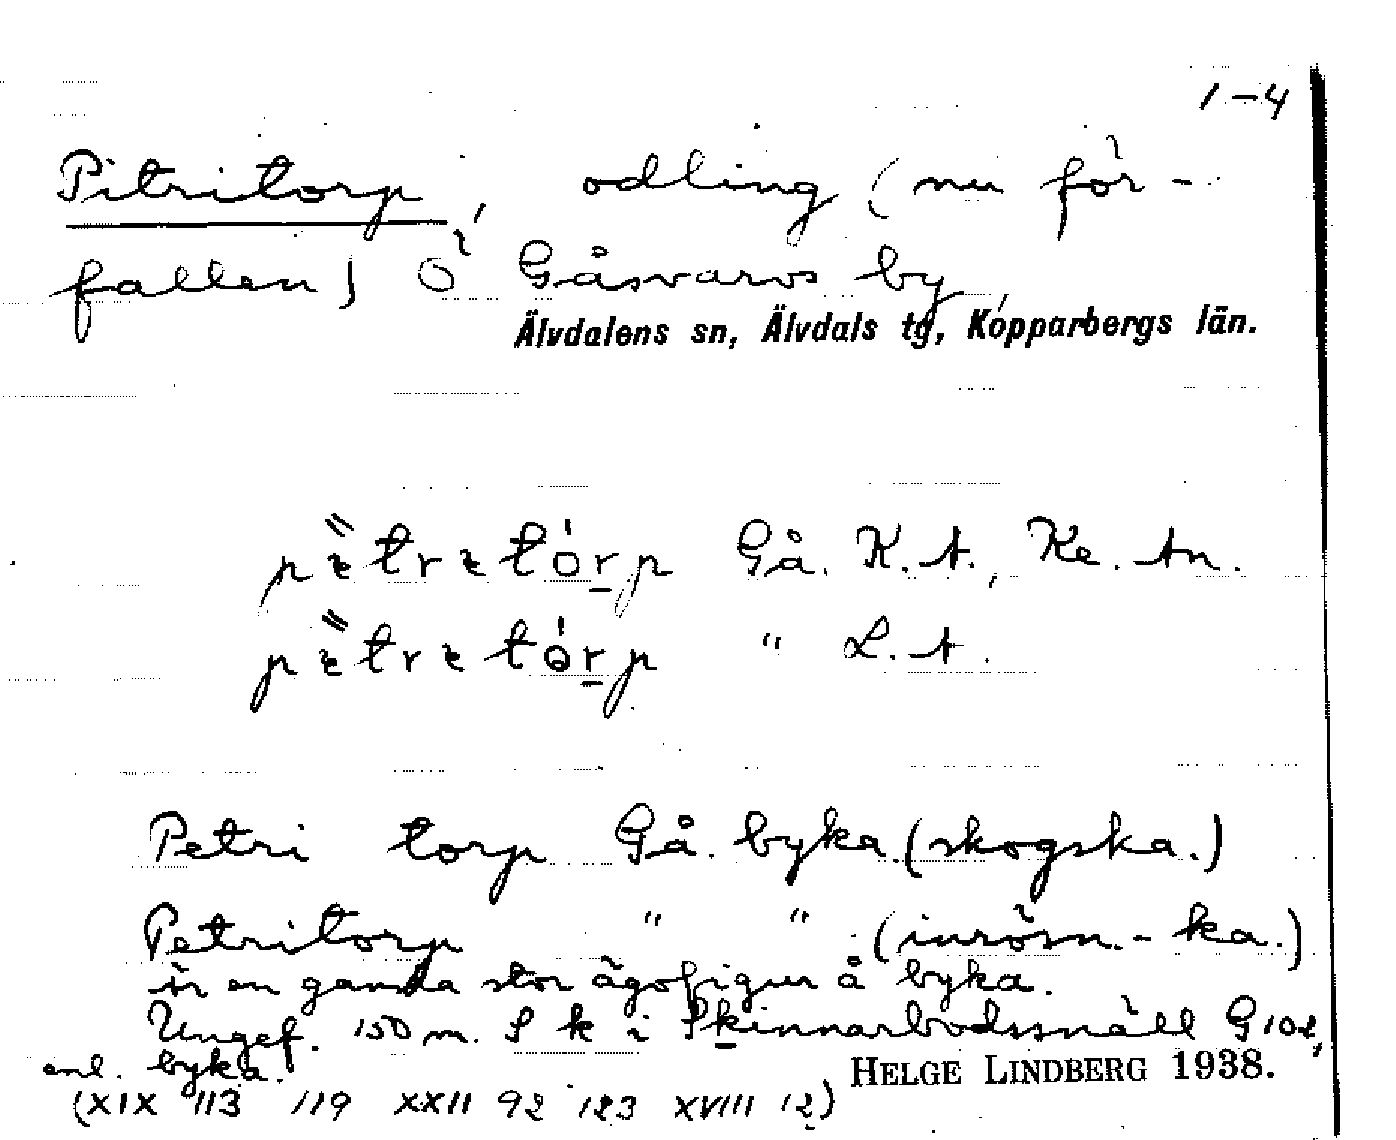 1-4
Pitritorp, odling (nu för-
fallen) Ö Gåsvarvs by
Älvdalens sn, Älvdals tg, Kopparbergs län.
Gå. K.A., Ke. An.
" L.A.
Petri torp Gå. byka. (skogska.)
Petritorp " " (inrösn.-ka.)
är en ganska stor ägofigur å byka.
Ungef. 150 m. S k i Skinnarbodssnäll G102,
enl. byka.
HELGE LINDBERG 1938.
(XIX 113 119 XXII 92 123 XVIII 12)